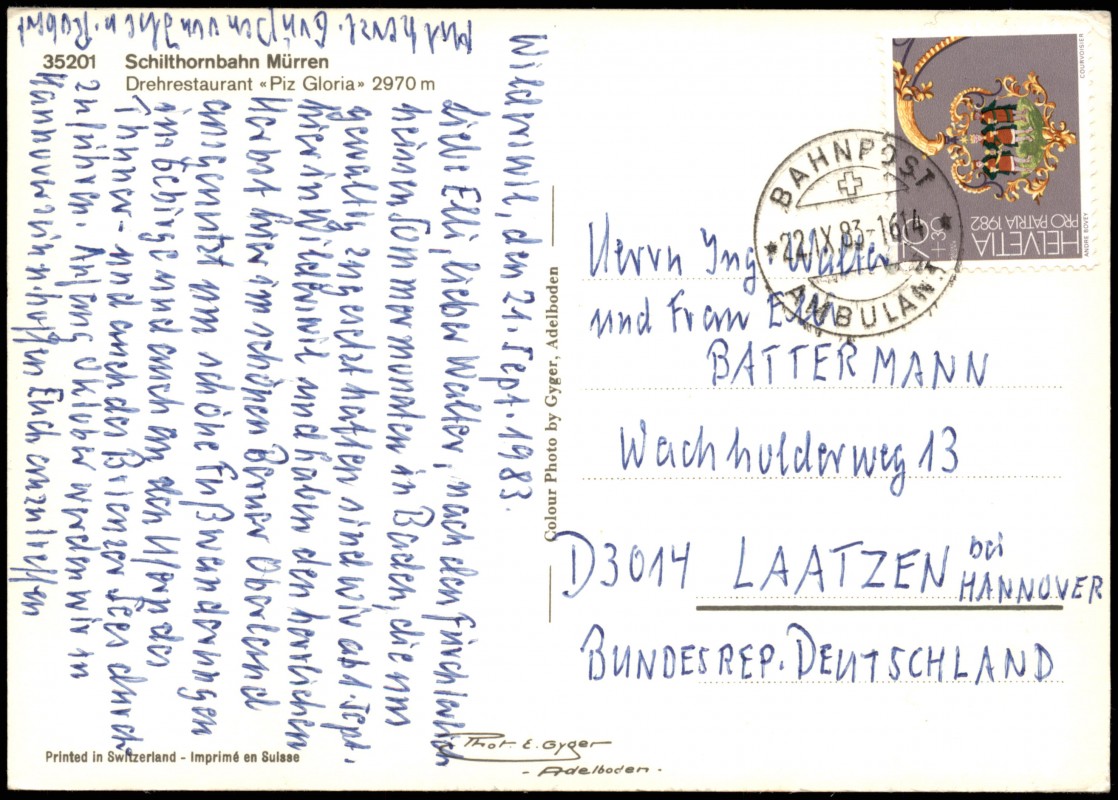 35201 Schilthornbahn Mürren
Drehrestaurant «Piz Gloria» 2970 m
Wilderswil, den 21. Sept. 1983.
Liebe Elli, lieber Walter, nach den fürchterlich
heissen Sommermonaten in Baden, die uns
gewaltig zugesetzt hatten sind wir ab 1. Sept.
hier in Wilderswil und haben den herrlichen
Herbst hier im schönen Berner Oberland
ausgenutzt um schöne Fußwanderungen
im Gebirge und auch an den Ufern des
Thuner- und auch des Brienzer Sees durch-
zuführen. Anfang Oktober werden wir in
Hannover sein u. hoffen Euch anzutreffen
Mit herzl. Grüßen von Ilse u. Robert
Colour Photo by Gyger, Adelboden
Printed in Switzerland - Imprimé en Suisse
Phot. E. Gyger
- Adelboden -
COURVOISIER
HELVETIA
PRO PATRIA 1982
ANDRÉ BOVEY
BAHNPOST
22.IX.83-1614
AMBULANT
Herrn Ing Walter
und Frau Elli
BATTERMANN
Wachholderweg 13
D3014 LAATZEN bei
HANNOVER
BUNDESREP. DEUTSCHLAND